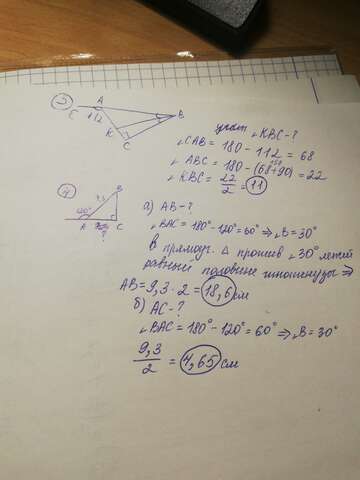 3) A
E 112 B
K
C
угол ∠KBC-?
∠CAB = 180 - 112 = 68
∠ABC = 180 - (68+90) = 22
∠KBC = 22/2 = 11
4) B
120°
A C
?
а) AB-?
∠BAC = 180° - 120° = 60° ⇒ ∠B = 30°
В прямоуг. Δ против ∠30° лежит
равный половине гипотенузы ⇒
AB = 9,3 · 2 = 18,6 см
б) AC-?
∠BAC = 180° - 120° = 60° ⇒ ∠B = 30°
9,3/2 = 4,65 см